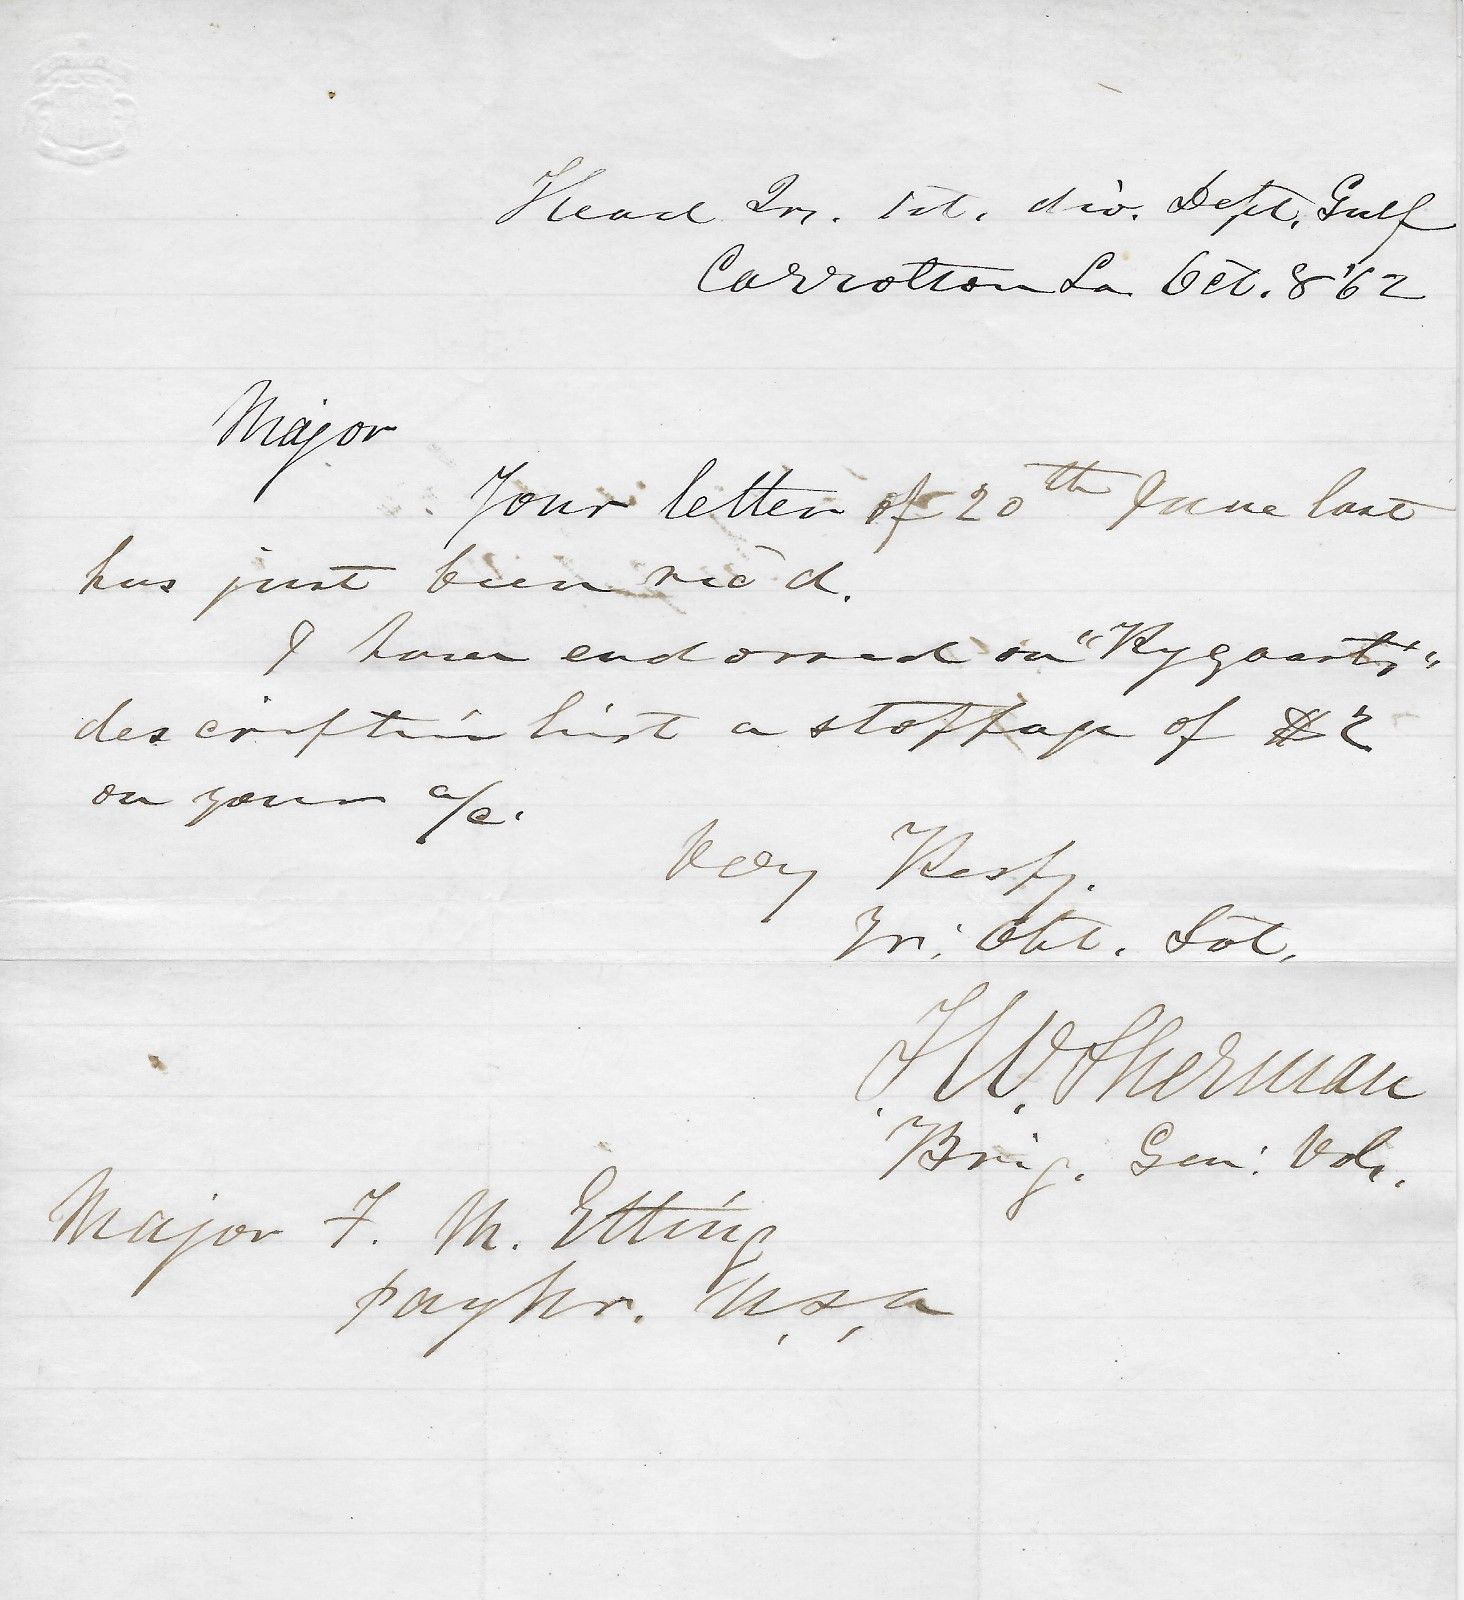 Head Qrs. 1st. div. Dept. Gulf
Carrolton La Oct. 8 '62
Major
Your letter of 20th June last
has just been rec'd.
I have endorsed on "Rygaarts"
descriptive list a stoppage of $2
on your a/c.
Very Resfy.
Yr. Obt. Svt.
T. W. Sherman
Brig. Gen. Vols.
Major F. M. Etting
payMr. U.S.A